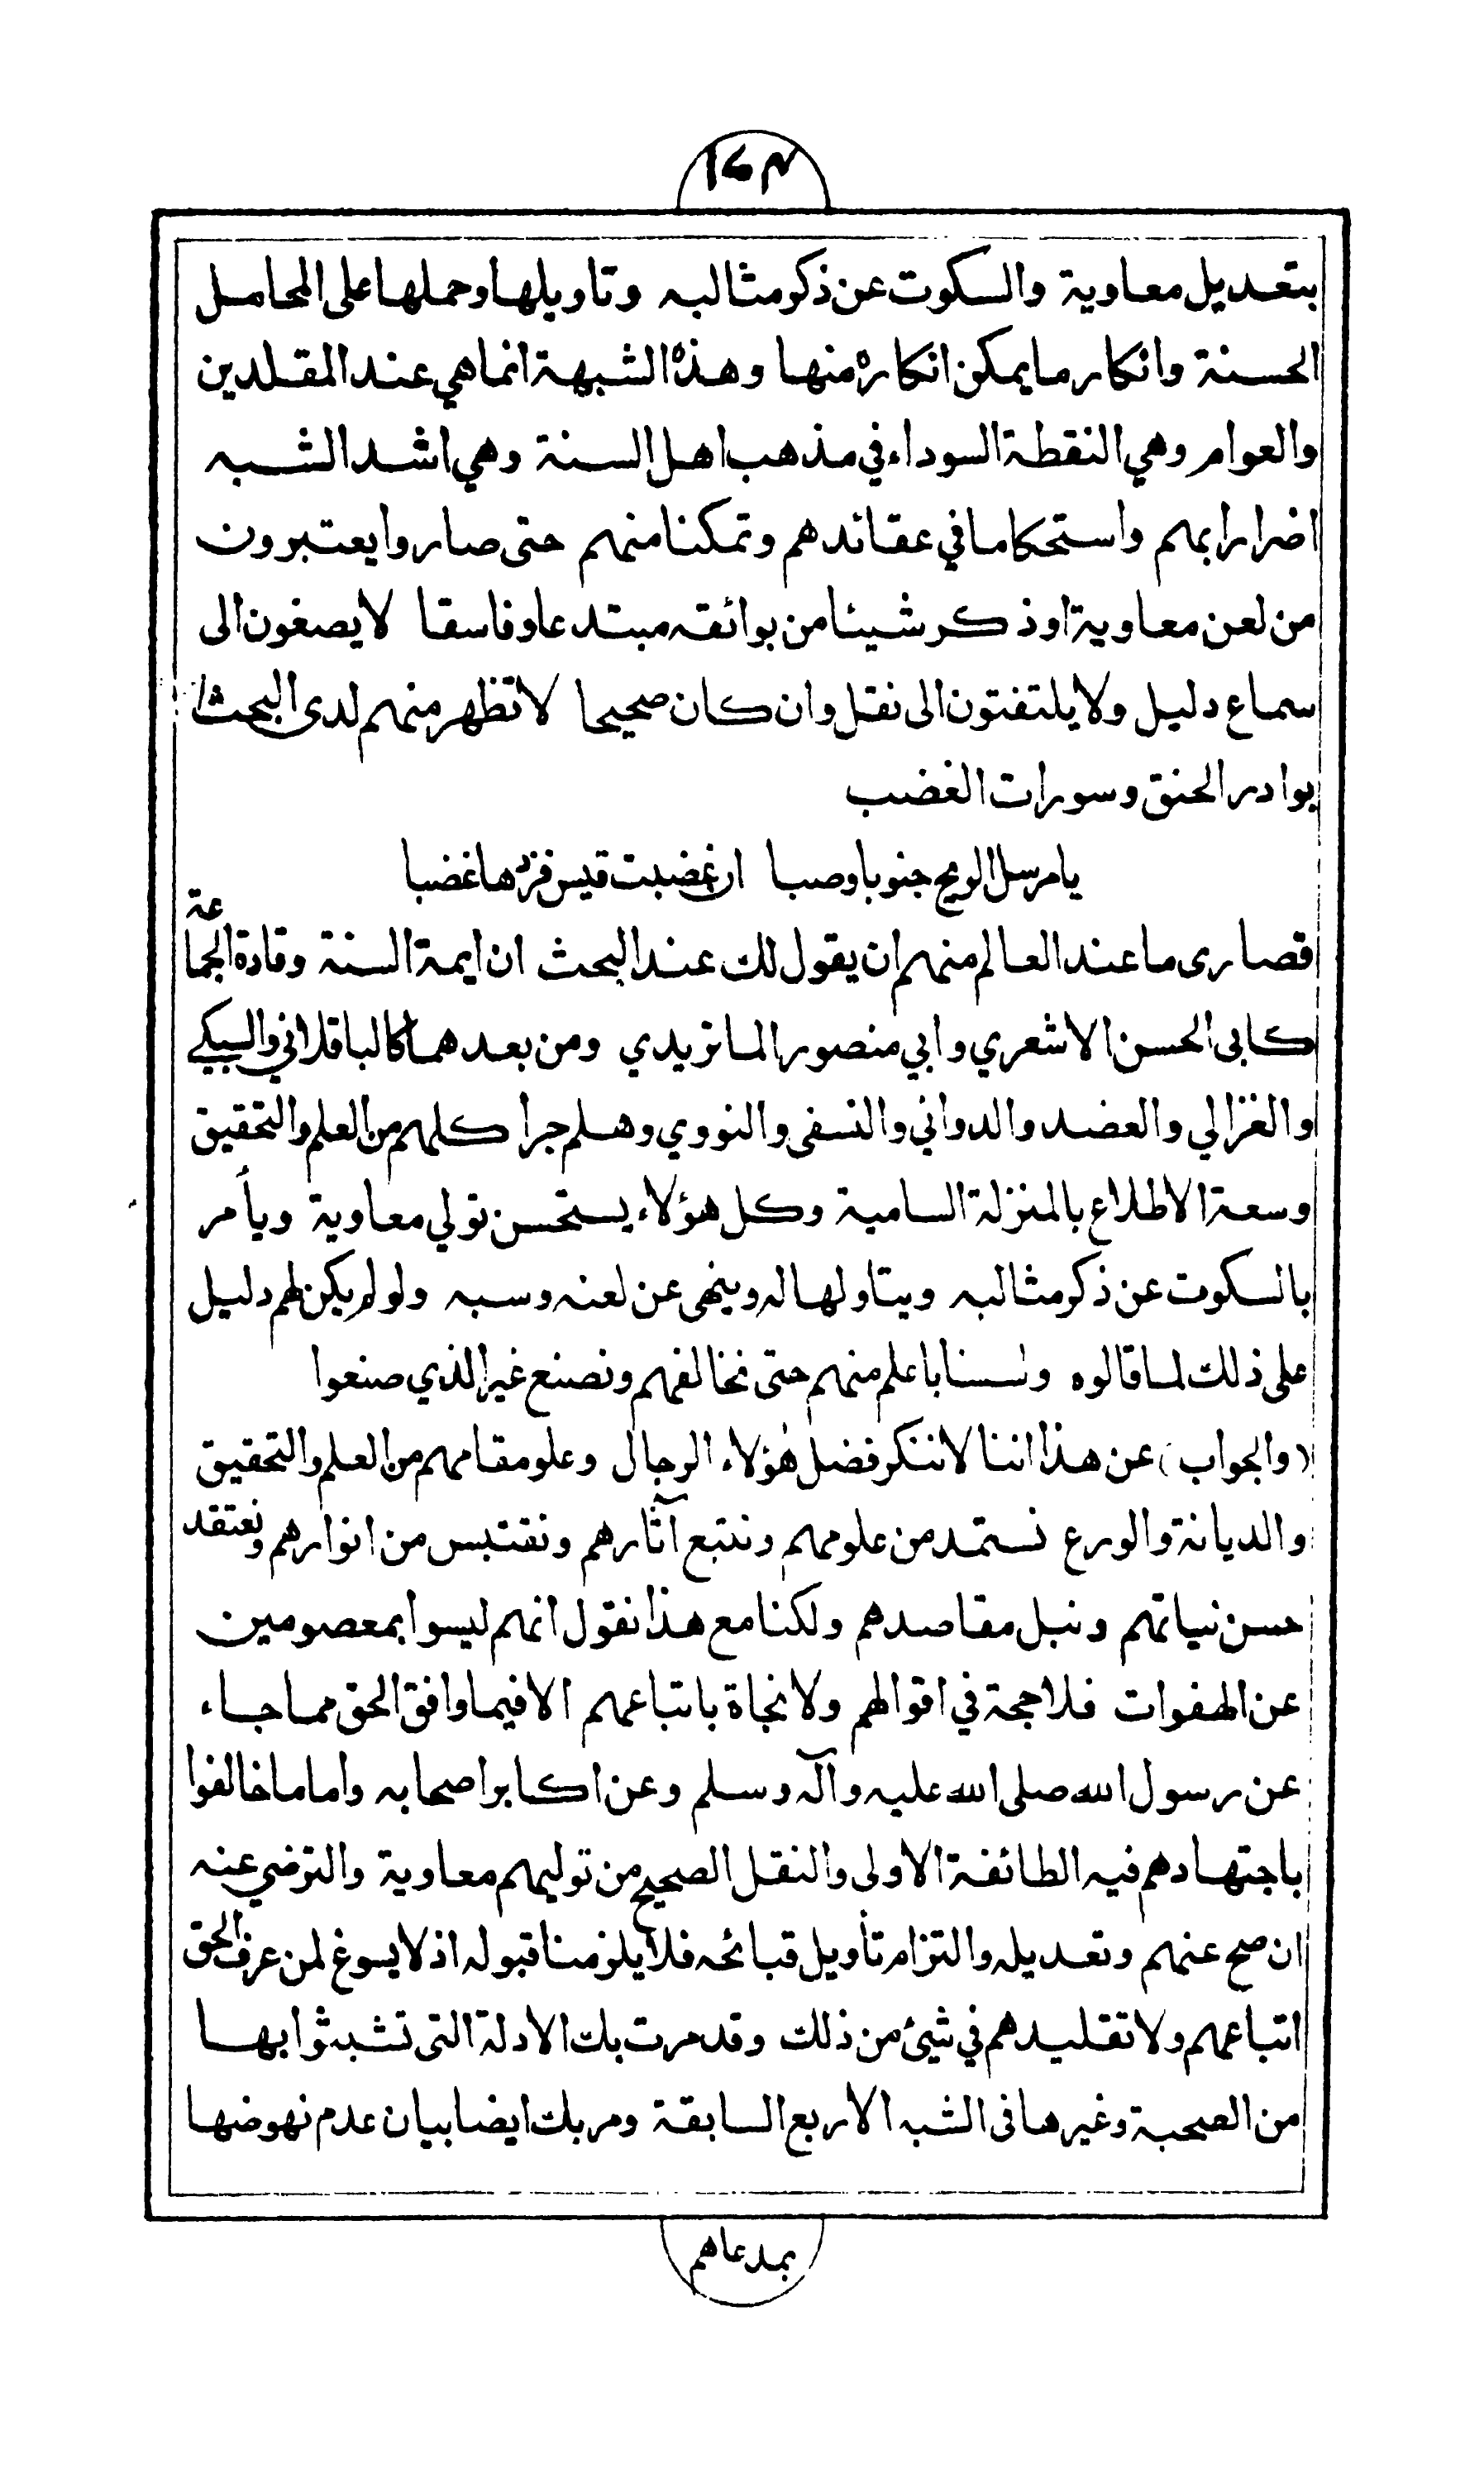 ١٤٣
بتعديل معاوية والسكوت عن ذكر مثالبه وتاويلها وحملها على المحامل
الحسنة وانكار ما يمكن انكاره منها وهذه الشبهة انما هي عند المقلدين
والعوام وهي النقطة السوداء في مذهب اهل السنة وهي اشد الشبه
اضرارا بهم واستحكاما في عقائدهم وتمكنا منهم حتى صاروا يعتبرون
من لعن معاوية او ذكر شيئا من بوائقه مبتدعا وفاسقا لا يصغون الى
سماع دليل ولا يلتفتون الى نقل وان كان صحيحا لا تظهر منهم لدى البحث الا
بوادر الحنق وسورات الغضب
يا مرسل الريح جنوبا وصبا ان غضبت قيس فزدها غضبا
قصارى ما عند العالم منهم ان يقول لك عند البحث ان ايمة السنة وقادة الجماعة
كابي الحسن الاشعري وابي منصور الماتريدي ومن بعدهما كالباقلاني والسبكي
والغزالي والعضد والدواني والنسفي والنووي وهلم جرا كلهم من العلم والتحقيق
وسعة الاطلاع بالمنزلة السامية وكل هؤلاء يستحسن تولي معاوية ويأمر
بالسكوت عن ذكر مثالبه ويتاولها له وينهى عن لعنه وسبه ولو لم يكن لهم دليل
على ذلك لما قالوه ولسنا باعلم منهم حتى نخالفهم ونصنع غير الذي صنعوا
(والجواب) عن هذا اننا لا ننكر فضل هؤلاء الرجال وعلو مقامهم من العلم والتحقيق
والديانة والورع نستمد من علومهم ونتبع آثارهم ونقتبس من انوارهم ونعتقد
حسن نياتهم ونبل مقاصدهم ولكنا مع هذا نقول انهم ليسوا بمعصومين
عن الهفوات فلا حجة في اقوالهم ولا نجاة باتباعهم الا فيما وافق الحق مما جاء
عن رسول الله صلى الله عليه وآله وسلم وعن اكابر اصحابه واما ما خالفوا
باجتهادهم فيه الطائفة الاولى والنقل الصحيح من توليهم معاوية والترضي عنه
ان صح عنهم وتعديله والتزام تأويل قبائحه فلا يلزمنا قبوله اذ لا يسوغ لمن عرف الحق
اتباعهم ولا تقليدهم في شيئ من ذلك وقد مرت بك الادلة التي تشبثوا بها
من الصحبة وغيرها في الشبه الاربع السابقة ومر بك ايضا بيان عدم نهوضها
بمدعاهم